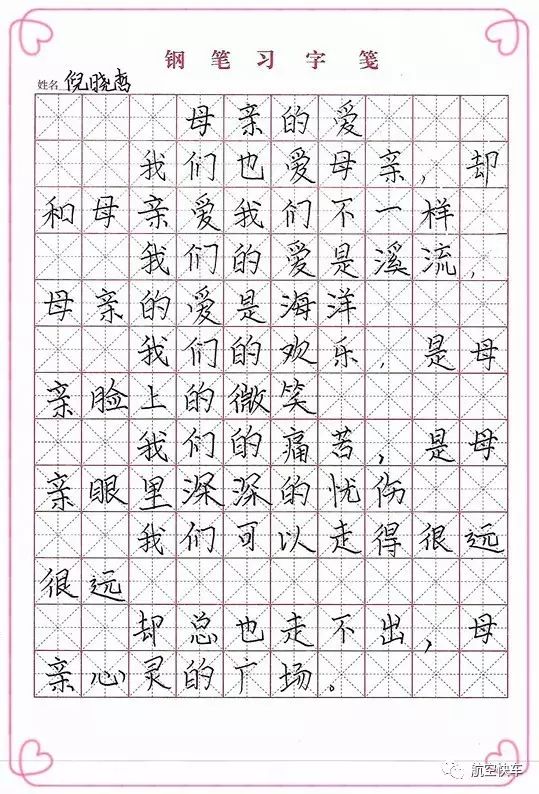 钢笔习字笺
姓名 倪晓
母亲的爱
我们也爱母亲，却
和母亲爱我们不一样
我们的爱是溪流，
母亲的爱是海洋
我们的欢乐，是母
亲脸上的微笑
我们的痛苦，是母
亲眼里深深的忧伤
我们可以走得很远
很远
却总也走不出，母
亲心灵的广场。
航空快车